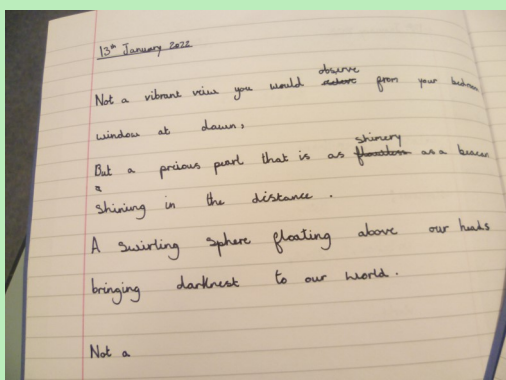 13th January 2022
observe
Not a vibrant veiw you would from your bedroom
window at dawn,
shinery
But a precious pearl that is as as a beacon
a
shining in the distance.
A swirling sphere floating above our heads
bringing darknest to our world.
Not a